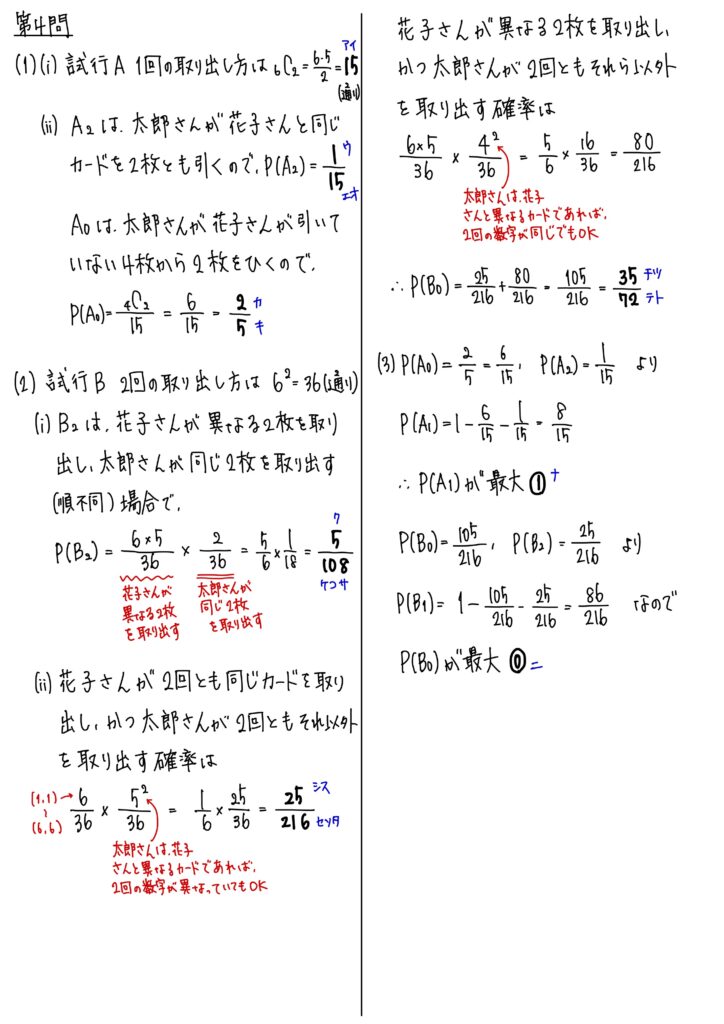 第4問
(1)(i) 試行A 1回の取り出し方は ₆C₂ = 6·5/2 = 15 アイ
(通り)
(ii) A₂は、太郎さんが花子さんと同じ
カードを2枚とも引くので、P(A₂) = 1/15 ウ エオ
A₀は、太郎さんが花子さんが引いて
いない4枚から2枚をひくので、
P(A₀) = ₄C₂/15 = 6/15 = 2/5 カ キ
(2) 試行B 2回の取り出し方は 6² = 36(通り)
(i) B₂は、花子さんが異なる2枚を取り
出し、太郎さんが同じ2枚を取り出す
(順不同)場合で、
P(B₂) = 6×5/36 × 2/36 = 5/6 × 1/18 = 5/108 ク ケコサ
花子さんが
異なる2枚
を取り出す
太郎さんが
同じ2枚
を取り出す
(ii) 花子さんが2回とも同じカードを取り
出し、かつ太郎さんが2回ともそれ以外
を取り出す確率は
(1,1)→
(6,6)
6/36 × 5²/36 = 1/6 × 25/36 = 25/216 シス センタ
太郎さんは、花子
さんと異なるカードであれば、
2回の数字が異なっていてもOK
花子さんが異なる2枚を取り出し、
かつ太郎さんが2回ともそれら以外
を取り出す確率は
6×5/36 × 4²/36 = 5/6 × 16/36 = 80/216
太郎さんは、花子
さんと異なるカードであれば、
2回の数字が同じでもOK
∴ P(B₀) = 25/216 + 80/216 = 105/216 = 35/72 チツ テト
(3) P(A₀) = 2/5 = 6/15, P(A₂) = 1/15 より
P(A₁) = 1 - 6/15 - 1/15 = 8/15
∴ P(A₁)が最大 ① ナ
P(B₀) = 105/216, P(B₂) = 25/216 より
P(B₁) = 1 - 105/216 - 25/216 = 86/216 なので
P(B₀)が最大 ⓪ ニ